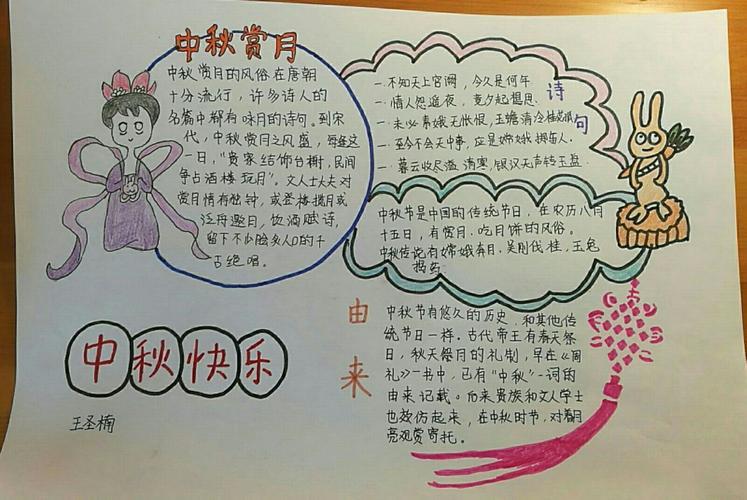 中秋赏月
中秋赏月的风俗在唐朝
十分流行，许多诗人的
名篇中都有咏月的诗句。到宋
代，中秋赏月之风盛，每逢这
一日，“贵家结饰台榭，民间
争占酒楼玩月”。文人士大夫对
赏月情有独钟，或登楼揽月或
泛舟邀月，饮酒赋诗，
留下不少脍炙人口的千
古绝唱。
诗句
一.不知天上宫阙，今久是何年.
一.情人怨遥夜，竟夕起想思.
一.未必素娥无怅恨，玉蟾清冷桂花孤
一.至今不会天中事，应是嫦娥掷与人.
一.暮云收尽溢清寒，银汉无声转玉盘.
中秋节是中国的传统节日，在农历八月
十五日，有赏月.吃月饼的风俗。
中秋传说有嫦娥奔月.吴刚伐桂，玉兔
捣药
由来
中秋节有悠久的历史，和其他传
统节日一样。古代帝王有春天祭
日，秋天祭月的礼制，早在《周
礼》一书中，已有“中秋”一词的
由来记载。后来贵族和文人学士
也效仿起来，在中秋时节，对着月
亮观赏寄托。
中秋快乐
王圣楠